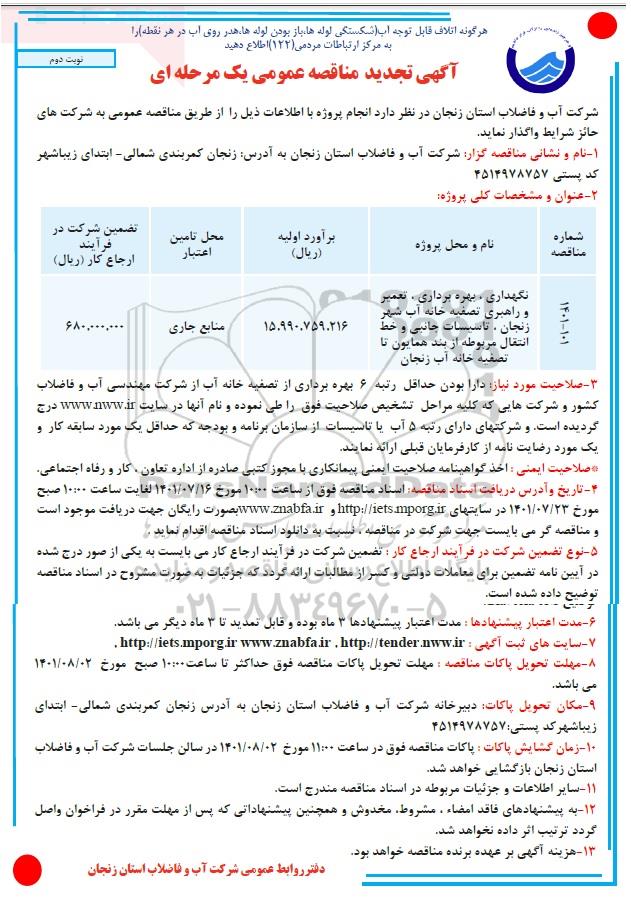 هرگونه اتلاف قابل توجه آب(شکستگی لوله ها،باز بودن لوله ها،هدر روی آب در هر نقطه)را
به مرکز ارتباطات مردمی(۱۲۲)اطلاع دهید
نوبت دوم
آگهی تجدید مناقصه عمومی یک مرحله ای
شرکت آب و فاضلاب استان زنجان در نظر دارد انجام پروژه با اطلاعات ذیل را از طریق مناقصه عمومی به شرکت های
حائز شرایط واگذار نماید.
۱-نام و نشانی مناقصه گزار: شرکت آب و فاضلاب استان زنجان به آدرس: زنجان کمربندی شمالی- ابتدای زیباشهر
کد پستی ۴۵۱۴۹۷۸۷۵۷
۲-عنوان و مشخصات کلی پروژه:
شماره مناقصه
نام و محل پروژه
برآورد اولیه (ریال)
محل تامین اعتبار
تضمین شرکت در فرآیند ارجاع کار (ریال)
نگهداری ، بهره برداری ، تعمیر
و راهبری تصفیه خانه آب شهر
زنجان ، تاسیسات جانبی و خط
انتقال مربوطه از بند همایون تا
تصفیه خانه آب زنجان
۱۵.۹۹۰.۷۵۹.۲۱۶
منابع جاری
۶۸۰.۰۰۰.۰۰۰
۳-صلاحیت مورد نیاز: دارا بودن حداقل رتبه ۶ بهره برداری از تصفیه خانه آب از شرکت مهندسی آب و فاضلاب
کشور و شرکت هایی که کلیه مراحل تشخیص صلاحیت فوق را طی نموده و نام آنها در سایت www.nww.ir درج
گردیده است. و شرکتهای دارای رتبه ۵ آب یا تاسیسات از سازمان برنامه و بودجه که حداقل یک مورد سابقه کار و
یک مورد رضایت نامه از کارفرمایان قبلی ارائه نمایند.
*صلاحیت ایمنی : اخذ گواهینامه صلاحیت ایمنی پیمانکاری با مجوز کتبی صادره از اداره تعاون ، کار و رفاه اجتماعی.
۴-تاریخ وآدرس دریافت اسناد مناقصه: اسناد مناقصه فوق از ساعت ۱۰:۰۰ مورخ ۱۴۰۱/۰۷/۱۶ لغایت ساعت ۱۰:۰۰ صبح
مورخ ۱۴۰۱/۰۷/۲۳ در سایتهای http://iets.mporg.ir و www.znabfa.irبصورت رایگان جهت دریافت موجود است
و مناقصه گر می بایست جهت شرکت در مناقصه ، نسبت به دانلود اسناد مناقصه اقدام نماید .
۵-نوع تضمین شرکت در فرآیند ارجاع کار : تضمین شرکت در فرآیند ارجاع کار می بایست به یکی از صور درج شده
در آیین نامه تضمین برای معاملات دولتی و کسر از مطالبات ارائه گردد که جزئیات به صورت مشروح در اسناد مناقصه
توضیح داده شده است.
۶-مدت اعتبار پیشنهادها : مدت اعتبار پیشنهادها ۳ ماه بوده و قابل تمدید تا ۳ ماه دیگر می باشد.
۷-سایت های ثبت آگهی : http://iets.mporg.ir www.znabfa.ir , http://tender.nww.ir ,
۸-مهلت تحویل پاکات مناقصه : مهلت تحویل پاکات مناقصه فوق حداکثر تا ساعت۱۰:۰۰ صبح مورخ ۱۴۰۱/۰۸/۰۲
می باشد.
۹-مکان تحویل پاکات: دبیرخانه شرکت آب و فاضلاب استان زنجان به آدرس زنجان کمربندی شمالی- ابتدای
زیباشهرکد پستی:۴۵۱۴۹۷۸۷۵۷
۱۰-زمان گشایش پاکات : پاکات مناقصه فوق در ساعت ۱۱:۰۰ مورخ ۱۴۰۱/۰۸/۰۲ در سالن جلسات شرکت آب و فاضلاب
استان زنجان بازگشایی خواهد شد.
۱۱-سایر اطلاعات و جزئیات مربوطه در اسناد مناقصه مندرج است.
۱۲-به پیشنهادهای فاقد امضاء ، مشروط، مخدوش و همچنین پیشنهاداتی که پس از مهلت مقرر در فراخوان واصل
گردد ترتیب اثر داده نخواهد شد.
۱۳-هزینه آگهی بر عهده برنده مناقصه خواهد بود.
دفترروابط عمومی شرکت آب و فاضلاب استان زنجان
ParsNamadData
۰۲۱-۸۸۳۴۹۶۷۰-۵